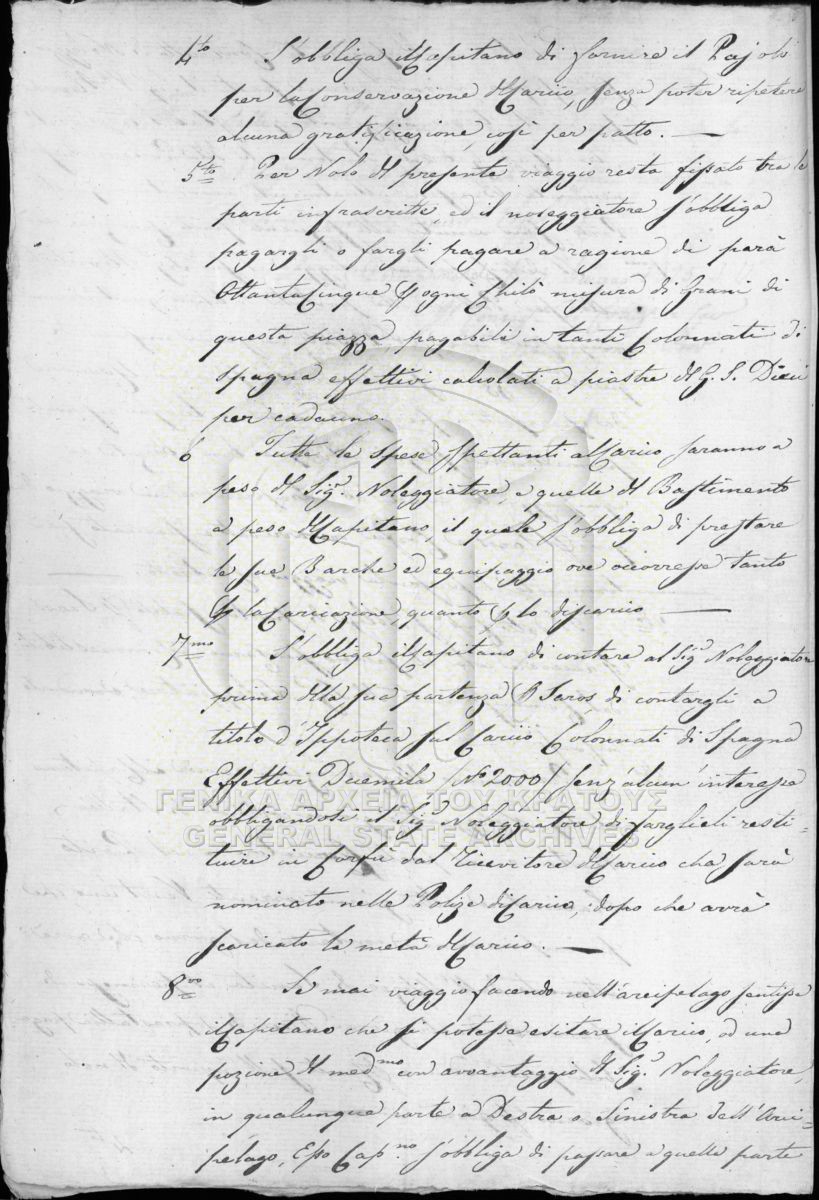 4to S'obbliga il Capitano di fornire il Pajolo
per la Conservazione del Carico, senza poter ripetere
alcuna gratificazione, così per patto. —
5to Per Nolo del presente viaggio resta fissato tra le
parti infrascritte, ed il noleggiatore s'obbliga
pagargli o fargli pagare a ragione di parà
Ottantacinque per ogni Chilò misura di Grani di
questa piazza, pagabili in tanti Colonnati di
Spagna effettivi calcolati a piastre del G. S. Dieci
per cadauno.
6 Tutte le spese spettanti al Carico saranno a
peso del Sigr. Noleggiatore, e quelle del Bastimento
a peso del Capitano, il quale s'obbliga di prestare
le sue Barche ed equipaggio ove occorresse tanto
per la Caricazione, quanto per lo discarico —
7mo S'obbliga il Capitano di contare al Sigr Noleggiatore
prima della sua partenza per Saros di contargli a
titolo d'Ippoteca sul Carico Colonnati di Spagna
Effettivi Duemila (No 2000) senz'alcun'interesse
obbligandosi il Sigr Noleggiatore di farglieli resti-
ΓΕΝΙΚΑ ΑΡΧΕΙΑ ΤΟΥ ΚΡΑΤΟΥΣ
GENERAL STATE ARCHIVES
tuire in Corfù dal Ricevitore del Carico che sarà
nominato nelle Polize di Carico, dopo che avrà
scaricato la metà del Carico. —
8vo Se mai viaggio facendo nell'arcipelago sentisse
il Capitano che si potesse esitare il Carico, od una
pozione del medmo con avvantaggio del Sigr. Noleggiatore,
in qualunque parte a Destra o Sinistra dell'Arci-
pelago, Esso Capno s'obbliga di passare a quella parte